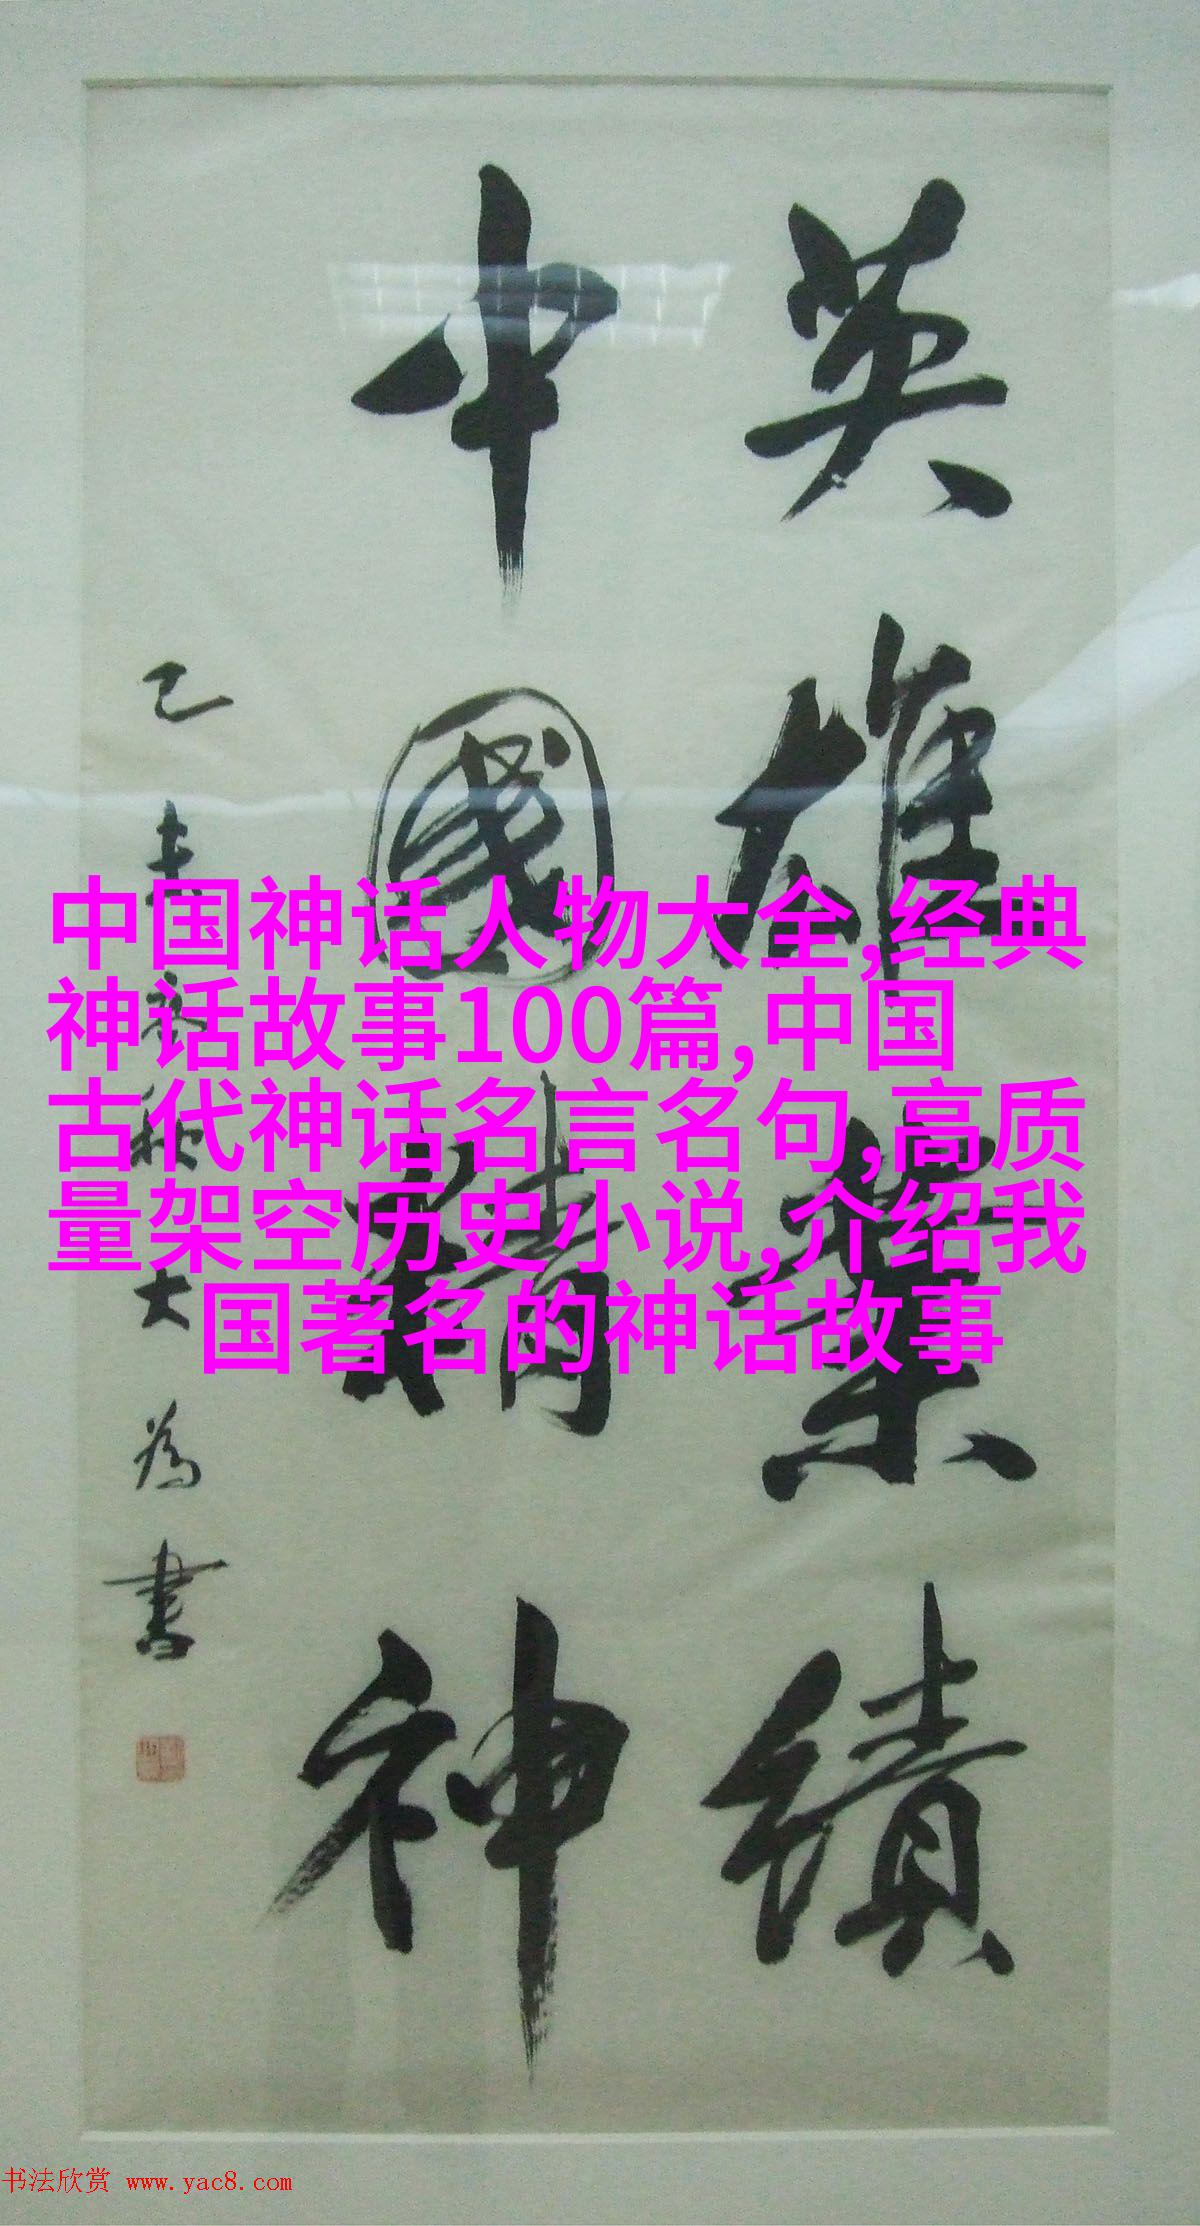 英雄業績
中國精神
己未秋大為書
中国神话人物大全,经典
神话故事100篇,中国
古代神话名言名句,高质
量架空历史小说,介绍我
国著名的神话故事
书法欣赏 www.yac8.com